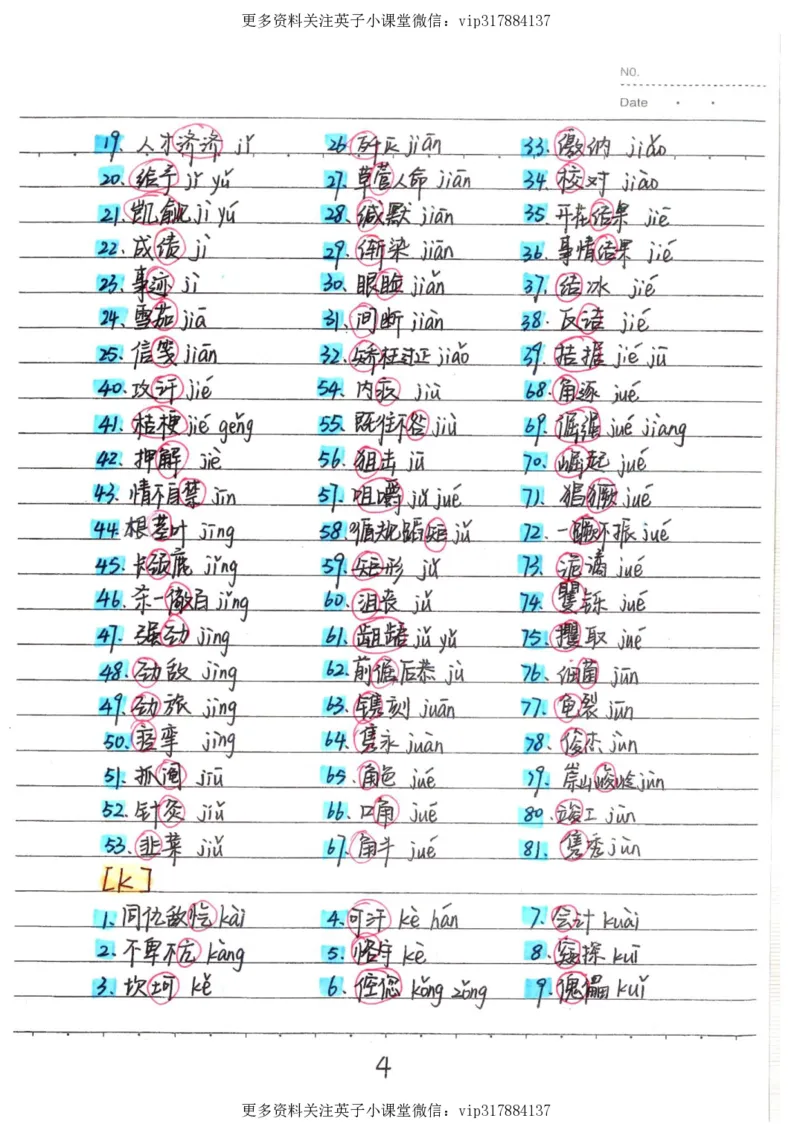 更多资料关注英子小课堂微信：vip317884137
NO.
Date
19. 人才济济 jǐ 26. 歼灭 jiān 33. 缴纳 jiǎo
20. 给予 jǐ yǔ 27. 草菅人命 jiān 34. 校对 jiào
21. 觊觎 jì yú 28. 缄默 jiān 35. 开花结果 jiē
22. 成绩 jì 29. 渐染 jiān 36. 事情结果 jié
23. 事迹 jì 30. 眼睑 jiǎn 37. 结冰 jié
24. 雪茄 jiā 31. 间断 jiàn 38. 反诘 jié
25. 信笺 jiān 32. 矫枉过正 jiǎo 39. 拮据 jié jū
40. 攻讦 jié 54. 内疚 jiù 68. 角逐 jué
41. 桔梗 jié gěng 55. 既往不咎 jiù 69. 倔强 jué jiàng
42. 押解 jiè 56. 狙击 jū 70. 崛起 jué
43. 情不自禁 jīn 57. 咀嚼 jǔ jué 71. 猖獗 jué
44. 根茎叶 jīng 58. 循规蹈矩 jǔ 72. 一蹶不振 jué
45. 长颈鹿 jǐng 59. 矩形 jǔ 73. 诡谲 jué
46. 杀一儆百 jǐng 60. 沮丧 jǔ 74. 矍铄 jué
47. 强劲 jìng 61. 龃龉 jǔ yǔ 75. 攫取 jué
48. 劲敌 jìng 62. 前倨后恭 jù 76. 细菌 jūn
49. 劲旅 jìng 63. 镌刻 juān 77. 龟裂 jūn
50. 痉挛 jìng 64. 隽永 juàn 78. 俊杰 jùn
51. 抓阄 jiū 65. 角色 jué 79. 崇山峻岭 jùn
52. 针灸 jiǔ 66. 口角 jué 80. 竣工 jùn
53. 韭菜 jiǔ 67. 角斗 jué 81. 隽秀 jùn
[k]
1. 同仇敌忾 kài 4. 可汗 kè hán 7. 会计 kuài
2. 不卑不亢 kàng 5. 恪守 kè 8. 窥探 kuī
3. 坎坷 kě 6. 倥偬 kǒng zǒng 9. 傀儡 kuǐ
4
更多资料关注英子小课堂微信：vip317884137